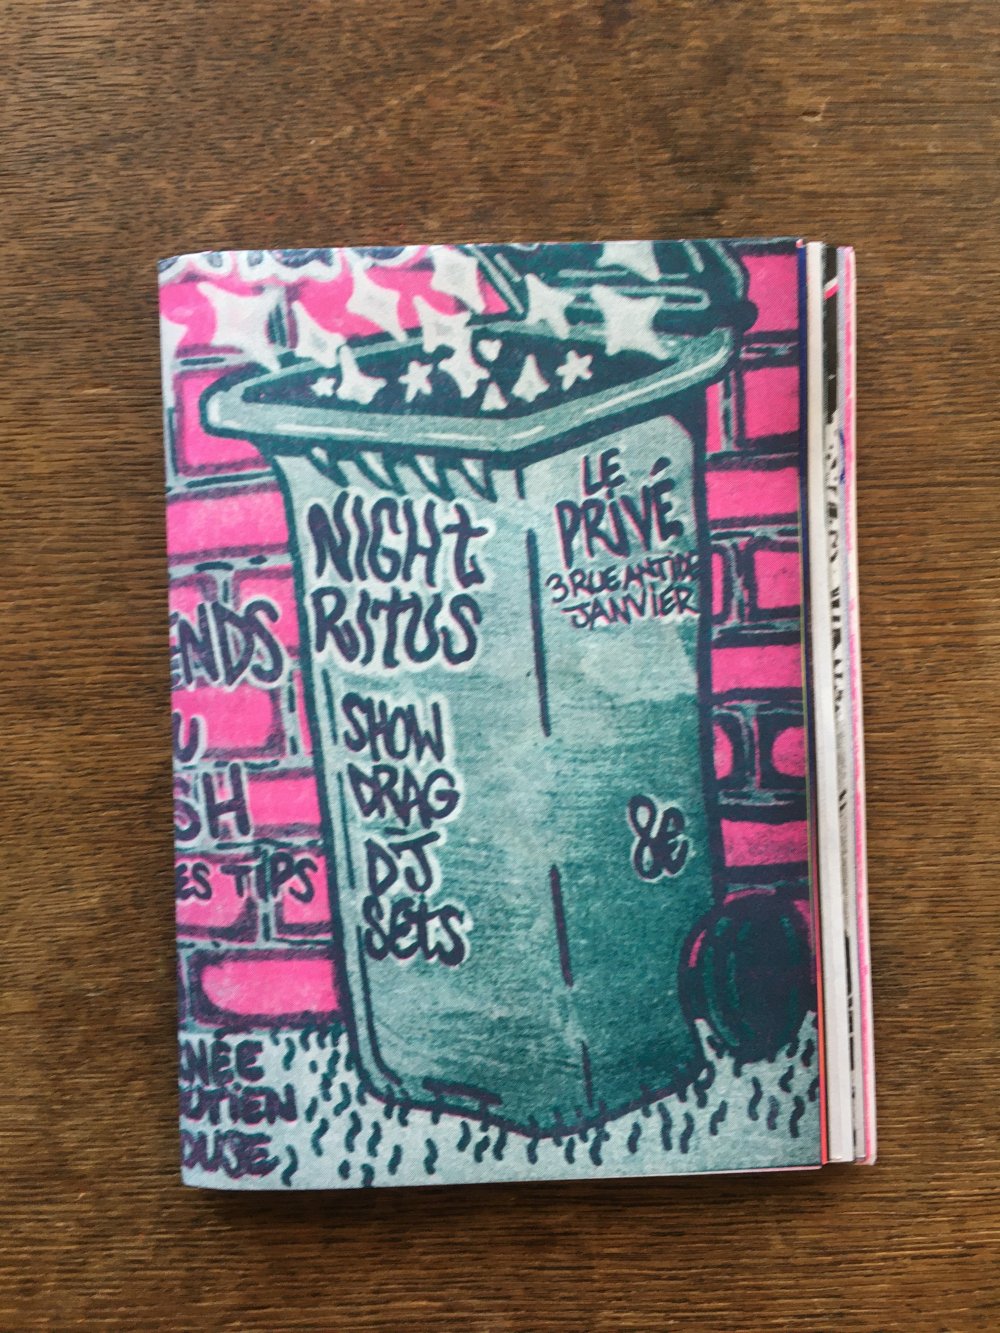 NIGHT
RITUS
SHOW
DRAG
DJ
SETS
LE
PRIVÉ
3 RUE ANTIDE
JANVIER
8€
ENDS
U
SH
ES TIPS
NÉE
OTIEN
OUSE